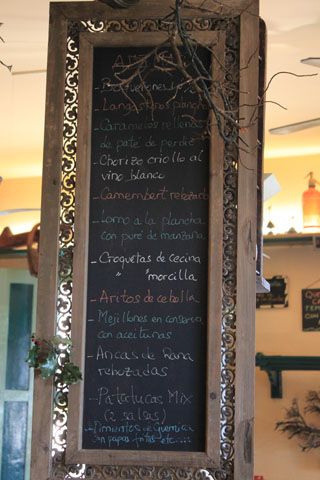 - Langostinos plancha
- Caramelos rellenos
de pate de perdiz
- Chorizo criollo al
vino blanco
- Camembert rebozado
- Lomo a la plancha
con puré de manzana
- Croquetas de cecina
" " morcilla
- Aritos de cebolla
- Mejillones en conserva
con aceitunas
- Ancas de Rana
rebozadas
- Patatucas Mix
(2 salsas)
- Pimientos de Guernica
con papas fritas etc...